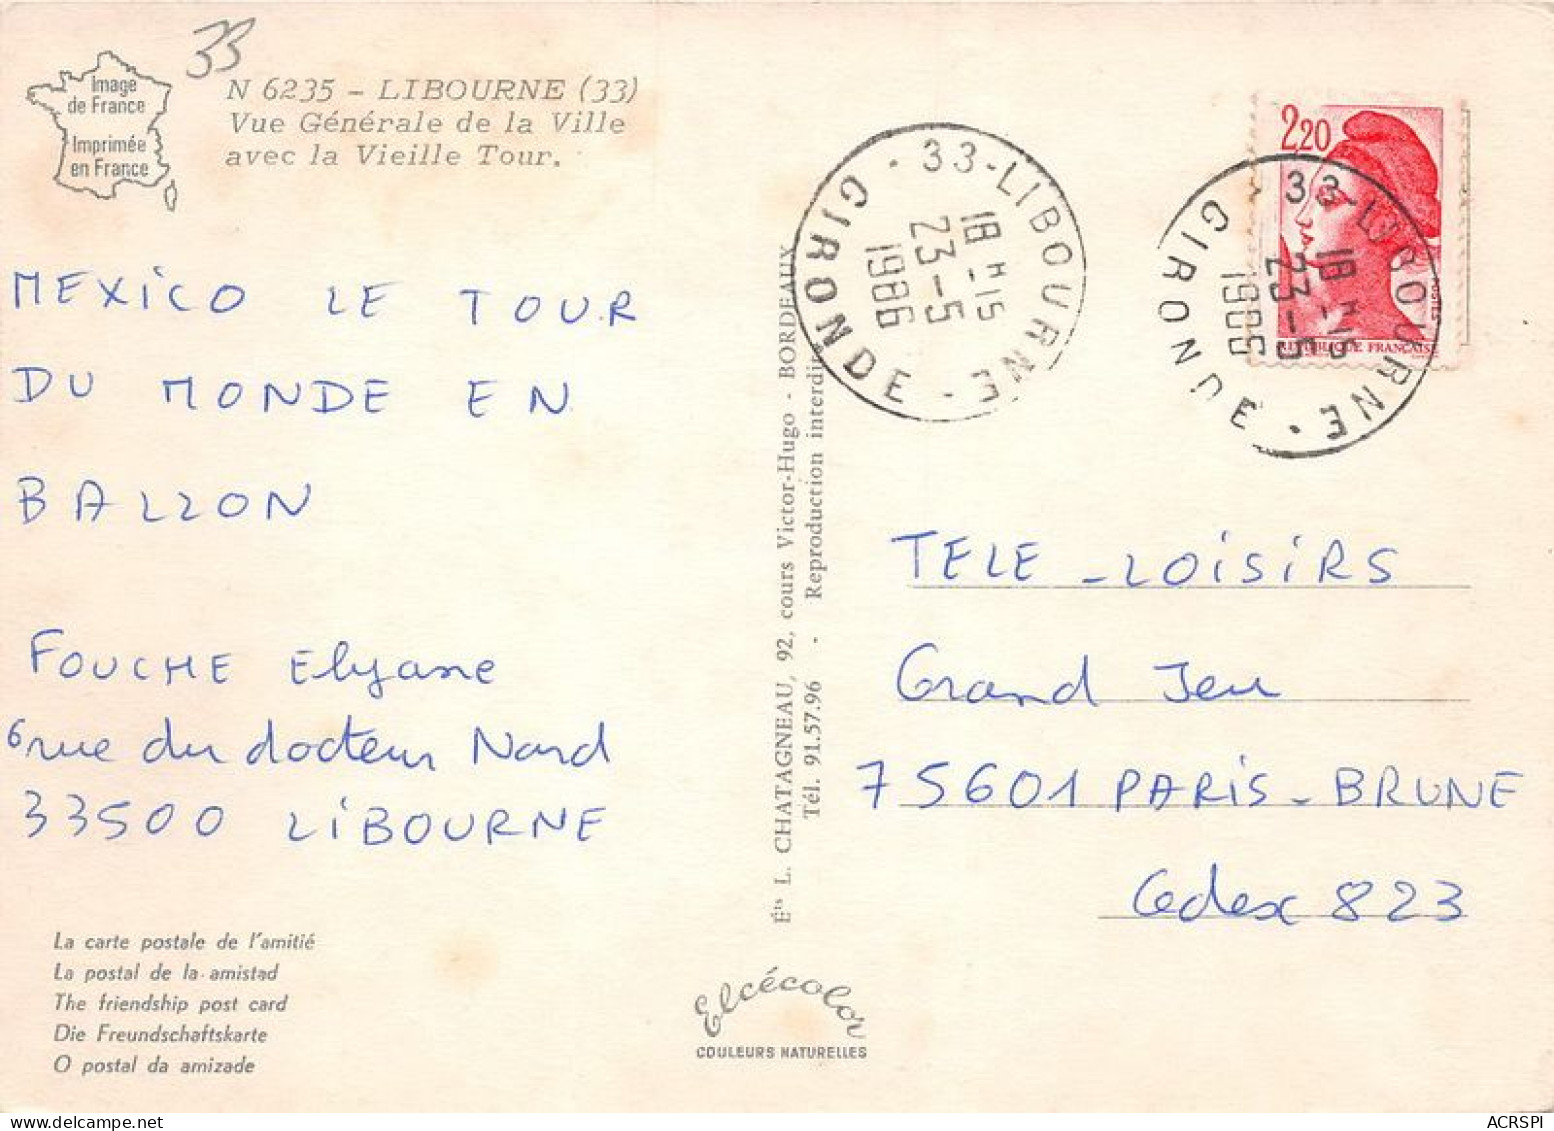 33
Image
de France
Imprimée
en France
N 6235 - LIBOURNE (33)
Vue Générale de la Ville
avec la Vieille Tour.
MEXICO LE TOUR
DU MONDE EN
BALLON
FOUCHE Elyane
6 rue du docteur Nard
33500 LIBOURNE
La carte postale de l'amitié
La postal de la amistad
The friendship post card
Die Freundschaftskarte
O postal da amizade
Éts L. CHATAGNEAU, 92, cours Victor-Hugo - BORDEAUX
Tél. 91.57.96 - Reproduction interdite
Elcécolor
COULEURS NATURELLES
33-LIBOURNE
18H15
23-5
1986
GIRONDE
2,20
POSTES
REPUBLIQUE FRANÇAISE
33-LIBOURNE
18H15
23-5
1986
GIRONDE
TELE-LOISIRS
Grand Jeu
75601 PARIS-BRUNE
Cedex 823
ACRSPI